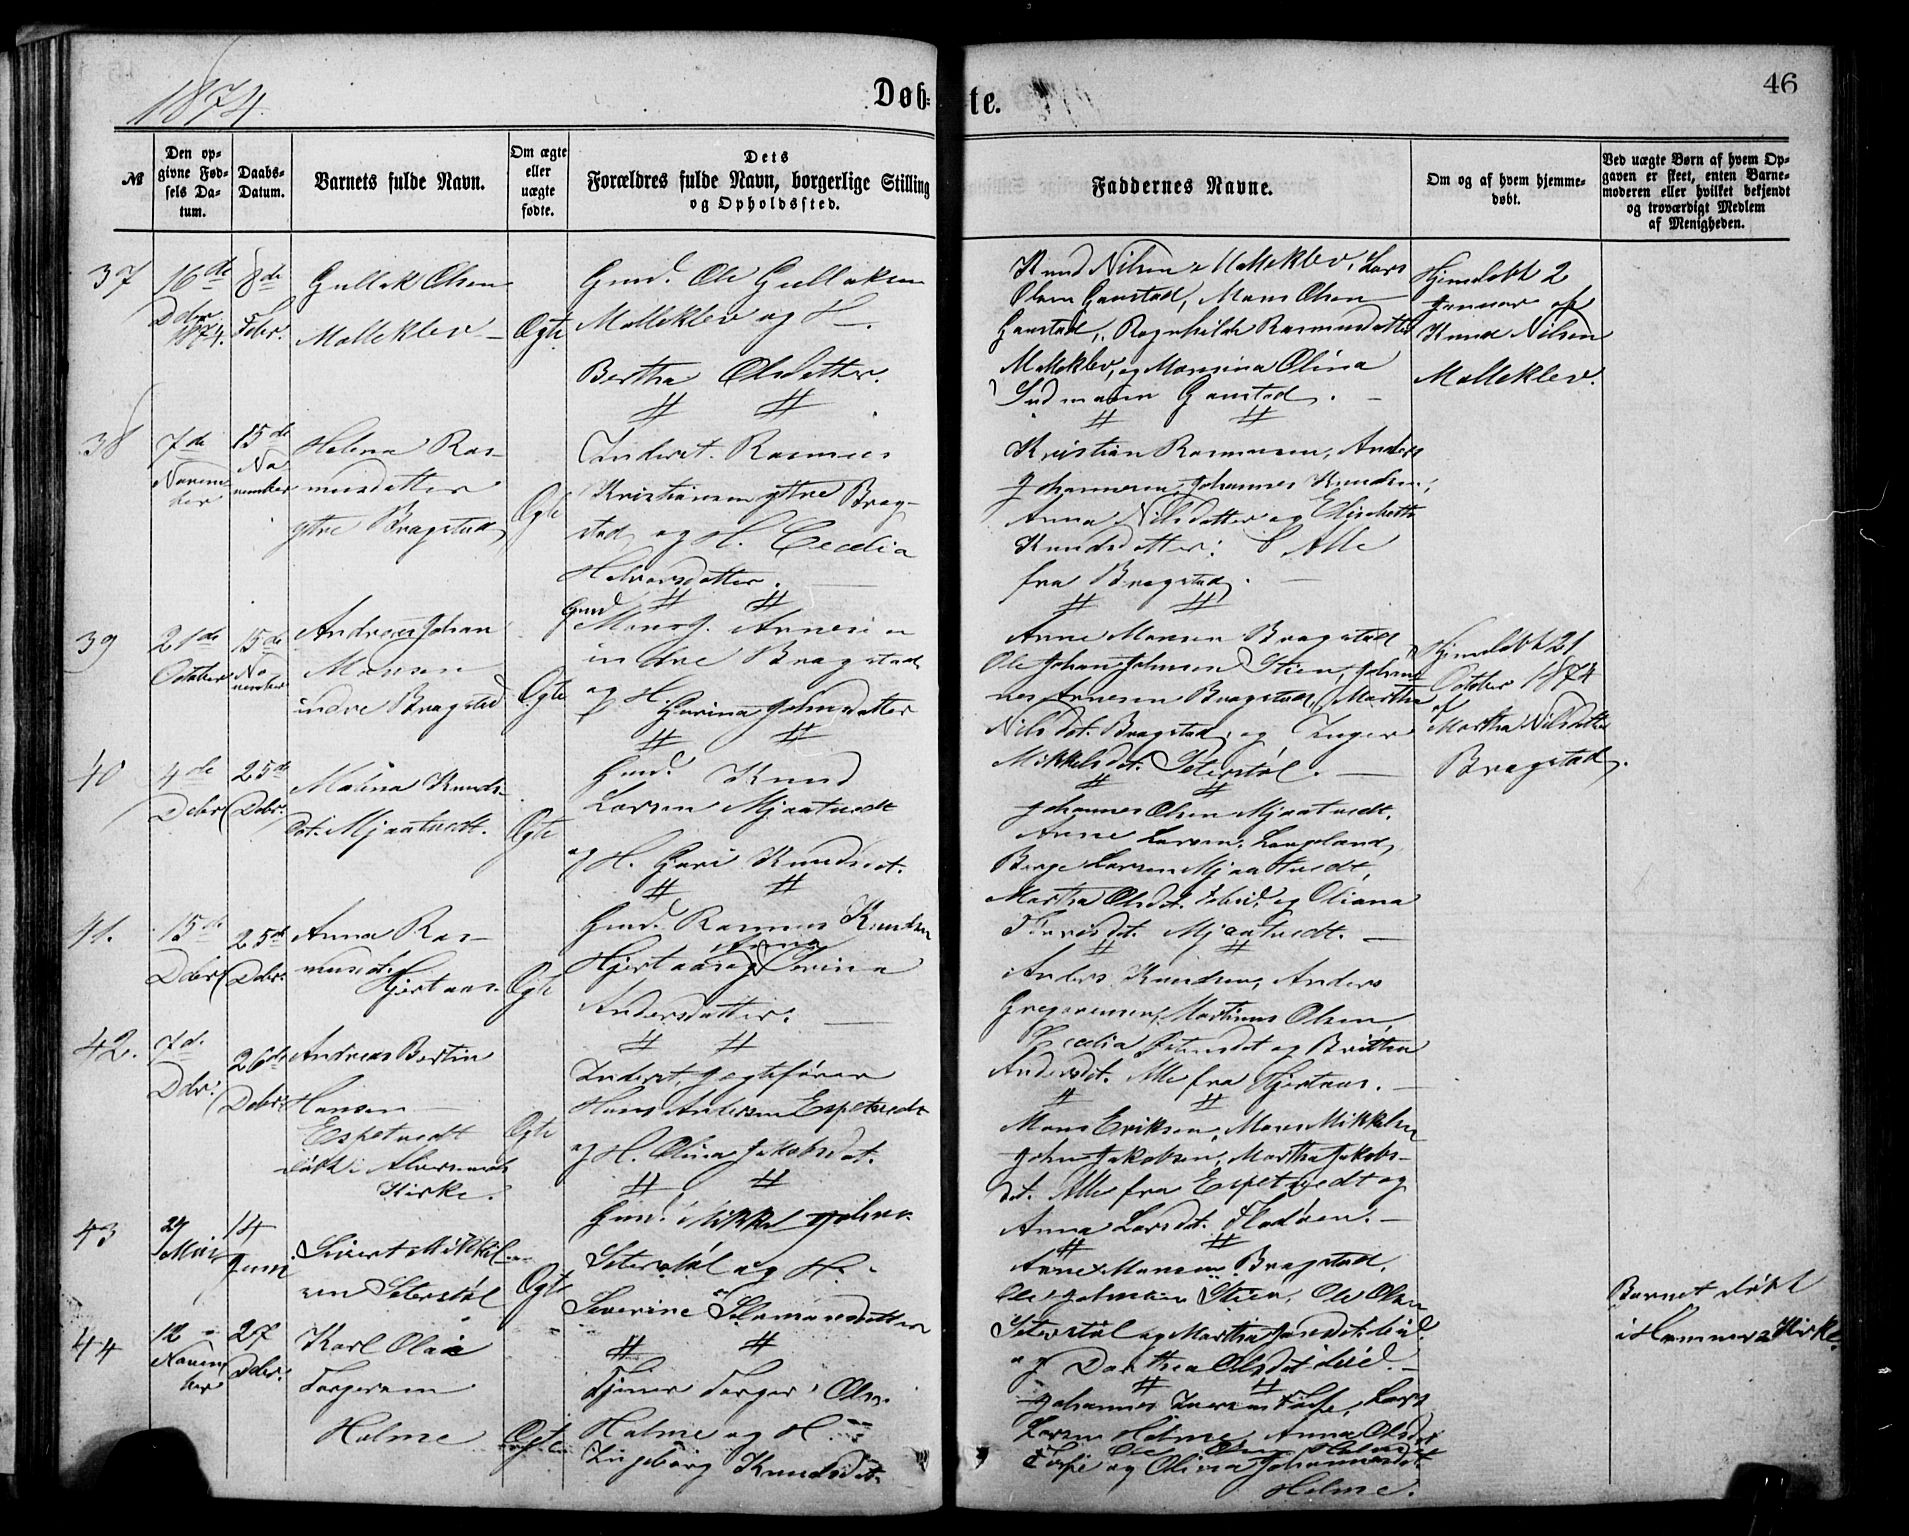 1874.
Døb-
te.
46
№
Den op-
givne Fød-
sels Da-
tum.
Daabs-
Datum.
Barnets fulde Navn.
Om ægte
eller
uægte
fødte.
Dets
Forældres fulde Navn, borgerlige Stilling
og Opholdssted.
Faddernes Navne.
Om og af hvem hjemme-
døbt.
Ved uægte Børn af hvem Op-
gaven er skeet, enten Barne-
moderen eller hvilket bekjendt
og troværdigt Medlem
af Menigheden.
37
16de
Dcbr.
1874.
8de
Febr.
Gullak Olsen
Molleklev
Ægte
Gmd. Ole Gullaksen
Molleklev og H
Bertha Olsdatter.
Knud Nilsen Molleklev, Lars
Olsen Gaustad, Mons Olsen
Gaustad, Ragnhilde Rasmusdatter
Molleklev, og Monsina Olina
Gaustad.
Hjemdøbt 2
Januar af
Knud Nilsen
Molleklev.
38
7de
Novem
ber
15de
No
vember
Helena Ras-
musdatter
yttre Bragstad
Ægte
Inderst. Rasmus
Kristiansen yttre Brag-
stad og H. Cecelia
Halvorsdatter.
Kristian Rasmussen, Anders
Johannesen, Johannes Knudsen,
Anna Nilsdatter og Elisabeth
Knudsdatter: Alle
fra Bragstad.
39
21de
October
15de
No
vember
Andreas Johan
Monsen
indre Bragstad
Ægte
Gmd
Mons J. Arnesen
indre Bragstad
og H. Gurina Johnsdatter
Arne Monsen Bragstad
Ole Johan Johnsen Stien, Johan-
nes Arnesen Bragstad, Martha
Nilsdt. Bragstad, og Inger
Mikkelsdt. Seterstøl.
Hjemdøbt 21
October 1874
af
Martha Nilsdatter
Bragstad.
40
4de
Dcbr
25de
Dcbr.
Malina Knuds-
dt. Mjaatvedt.
Ægte
Gmd. Knud
Larsen Mjaatvedt
og H. Guri Knudsdt.
Johannes Olsen Mjaatvedt,
Arne Larsen Langeland,
Berge Larsen Mjaatvedt,
Martha Olsdt. og Oliana
Mjaatvedt.
41.
15de
Dcbr
25de
Dcbr.
Anna Ras-
musdt.
Hjertaas.
Ægte
Gmd. Rasmus Knudsen
Hjertaas og Anna Serina
Andersdatter.
Anders Knudsen, Anders
Gregoriusen, Martinus Olsen,
Cecelia Johnsdt og Britha
Andersdt. Alle fra Hjertaas.
42.
7de
Dcbr.
26de
Dcbr.
Andreas Bertin
Hansen
Espetvedt
døbt i Alversunds
Kirke.
Ægte
Inderst, Jægtefører
Hans Andersen Espetvedt
og H. Olina Jakobsdt.
Mons Eriksen, Mons Mikkelsen
John Jakobsen, Martha Jakobs-
dt. Alle fra Espetvedt og
Anna Larsdt. Fladøen.
43
29
Mai
14
Juni
Sivert Mikkel-
sen Seterstøl
Ægte
Gmd. Mikkel Johns.
Seterstøl og H.
Severine Salamonsdatter
Arne Monsen Bragstad,
Ole Johnsen Stien, Ole Olsen
Seterstøl og Martha
og Dorthea Olsdt
Barnet døbt
i Hammers Kirke.
44
12
Novem
ber
27
Dcbr.
Karl Olai
Torgersen
Holme
Ægte
Tjener Torger Olsen
Holme og H.
Ingeborg Knudsdt.
Johannes Iversen Lars
Larsen Holme, Anna Olsdt
og Olina Johannesdt.
Holme.